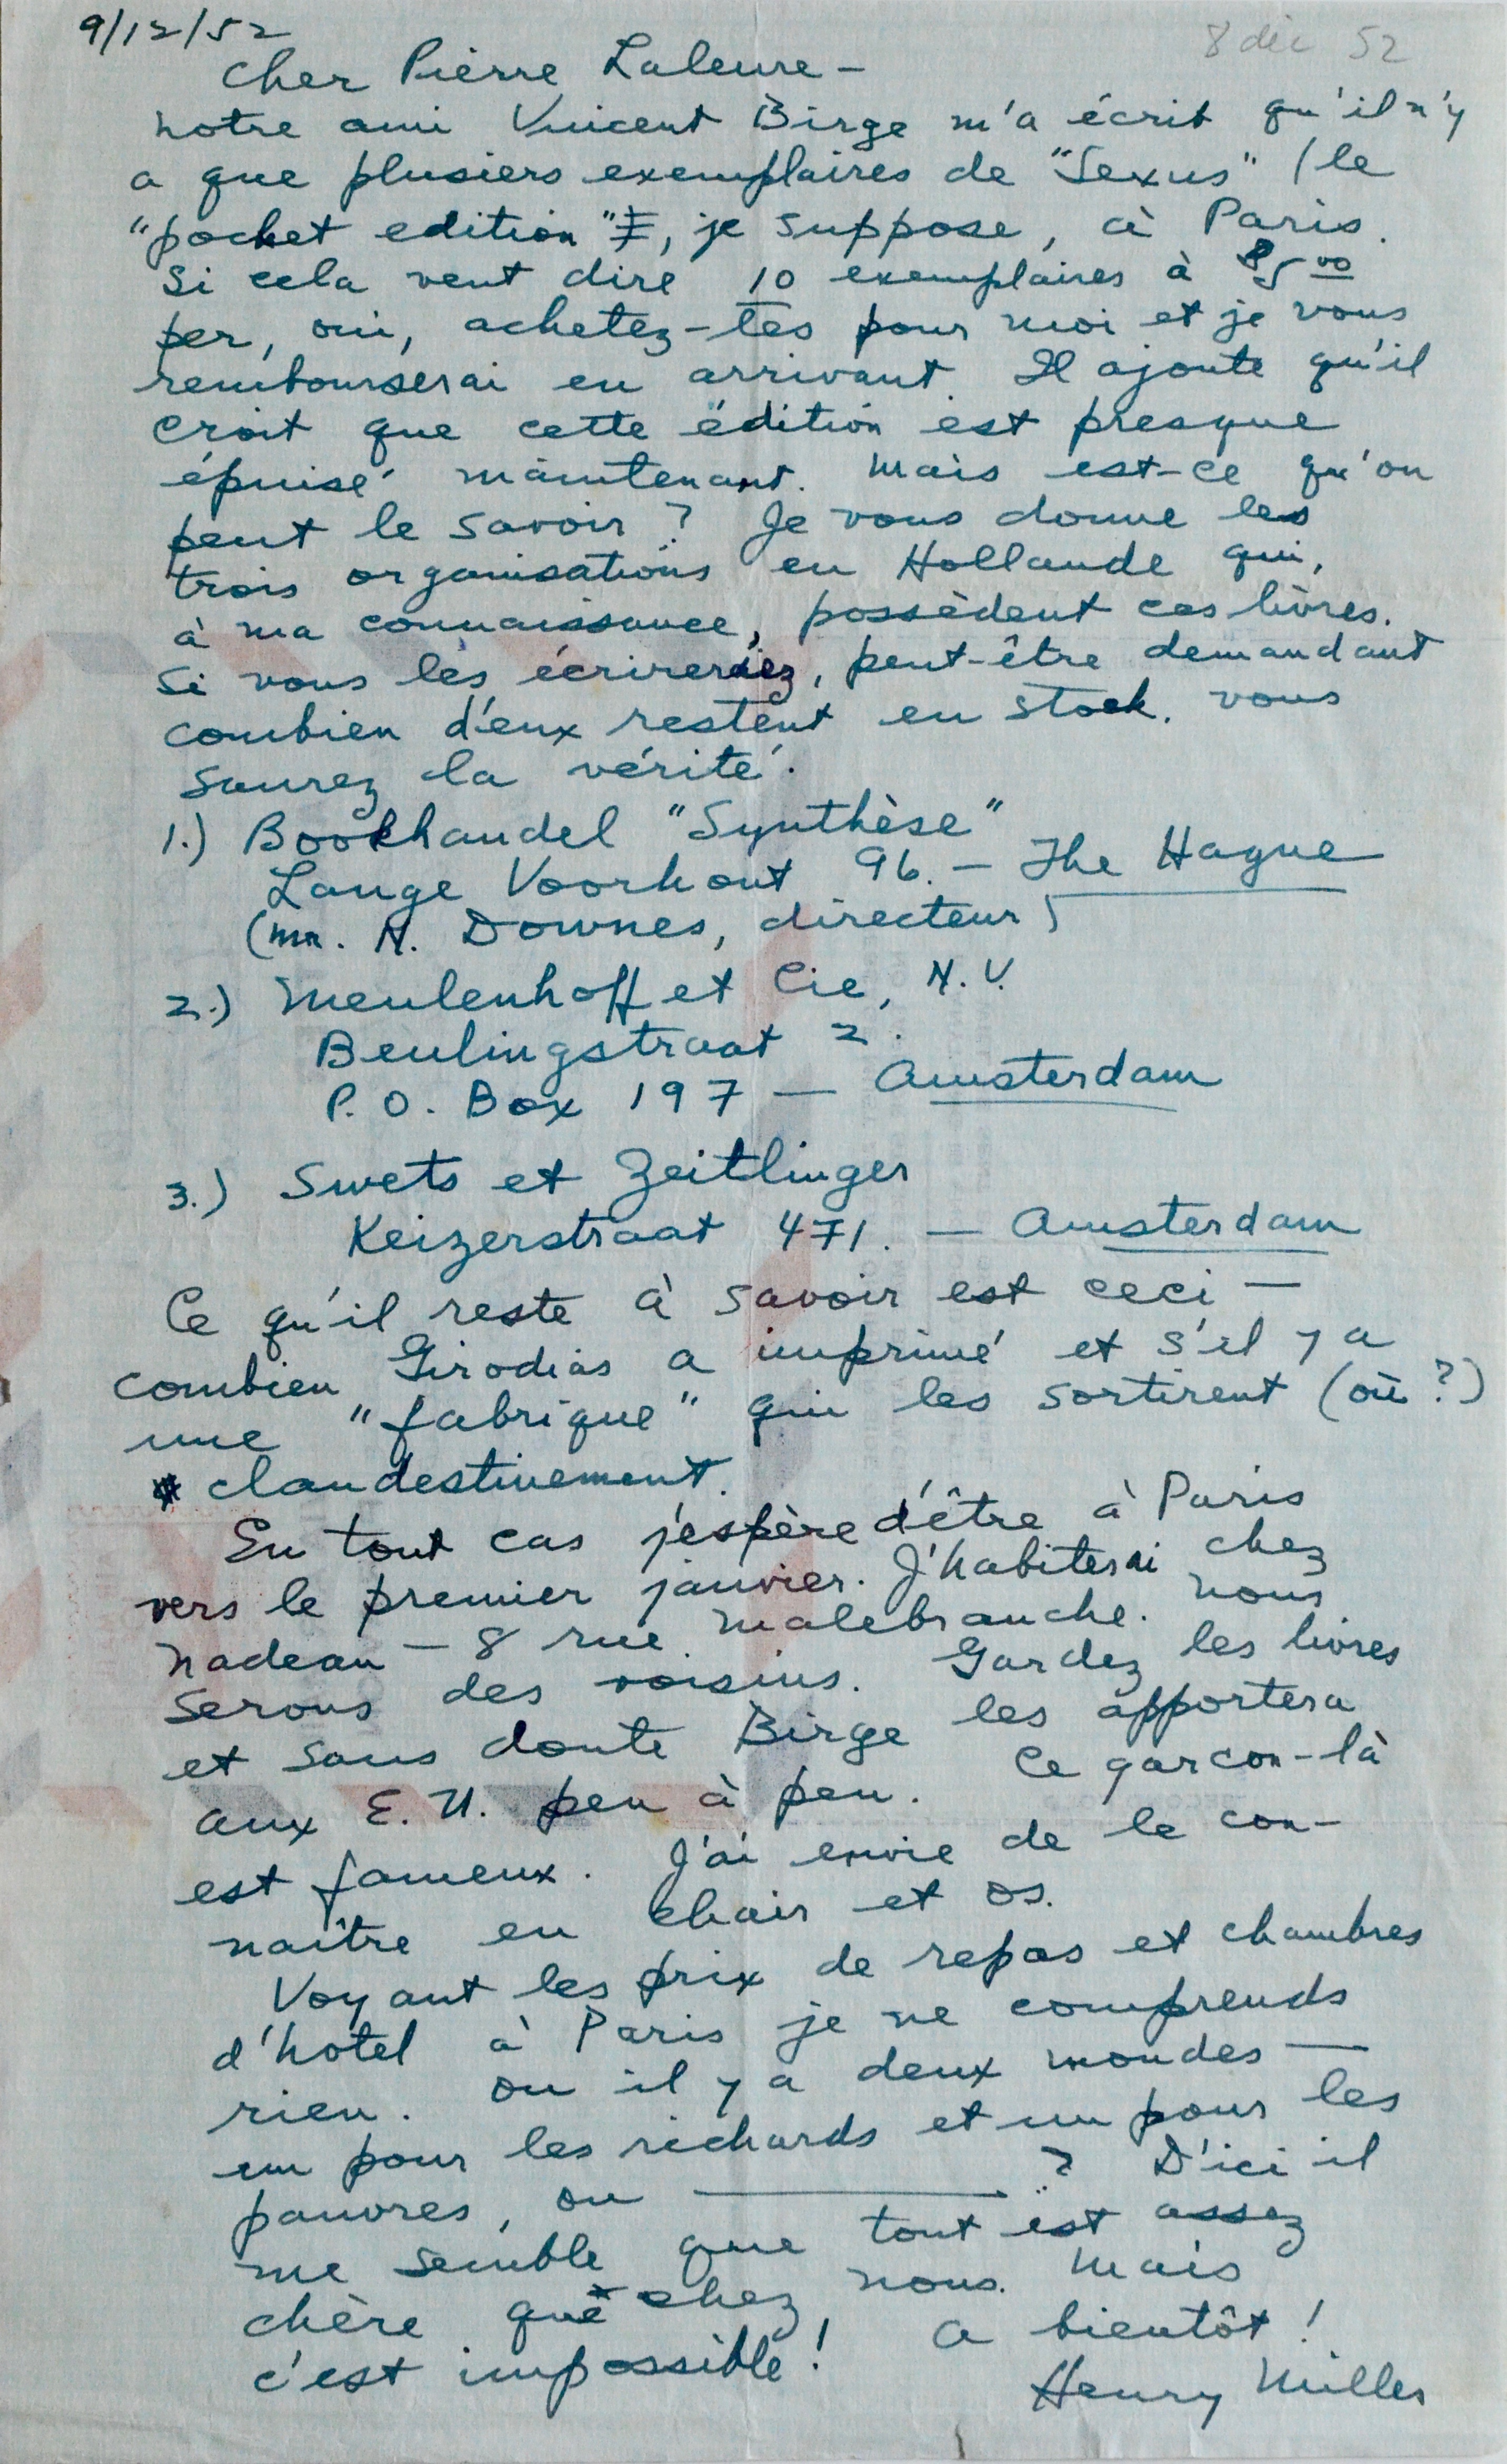 9/12/52
8 déc 52
Cher Pierre Laleure —
notre ami Vincent Birge m'a écrit qu'il n'y
a que plusiers exemplaires de "Sexus" (le
"pocket edition", je suppose, à Paris.
Si cela veut dire 10 exemplaires à $5.00
per, oui, achetez-les pour moi et je vous
rembourserai en arrivant. Il ajoute qu'il
croit que cette édition est presque
épuisé maintenant. Mais est-ce qu'on
peut le savoir? Je vous donne les
trois organisations en Hollande qui,
à ma connaissance, possèdent ces livres.
Si vous les écrireriez, peut-être demandant
combien d'eux restent en stock, vous
saurez la vérité.
1.) Bookhandel "Synthèse"
Lange Voorhout 96. — The Hague
(Mr. H. Downes, directeur)
2.) Meulenhoff et Cie, N.V.
Beulingstraat 2.
P.O. Box 197 — Amsterdam
3.) Swets et Zeitlinger
Keizerstraat 471. — Amsterdam
Ce qu'il reste à savoir est ceci —
combien Girodias a imprimé et s'il y a
une "fabrique" qui les sortirent (où?)
clandestinement.
En tout cas j'espère d'être à Paris
vers le premier janvier. J'habiterai chez
Nadeau — 8 rue Malebranche. Nous
serons des voisins. Gardez les livres
et sans doute Birge les apportera
aux E.U. peu à peu. Ce garcon-là
est fameux. J'ai envie de le con-
naître en chair et os.
Voyant les prix de repas et chambres
d'hôtel à Paris je ne comprends
rien. Ou il y a deux mondes —
un pour les richards et un pour les
pauvres, ou ———? D'ici il
me semble que tout est assez
chère que chez nous. Mais
c'est impossible! A bientôt!
Henry Miller